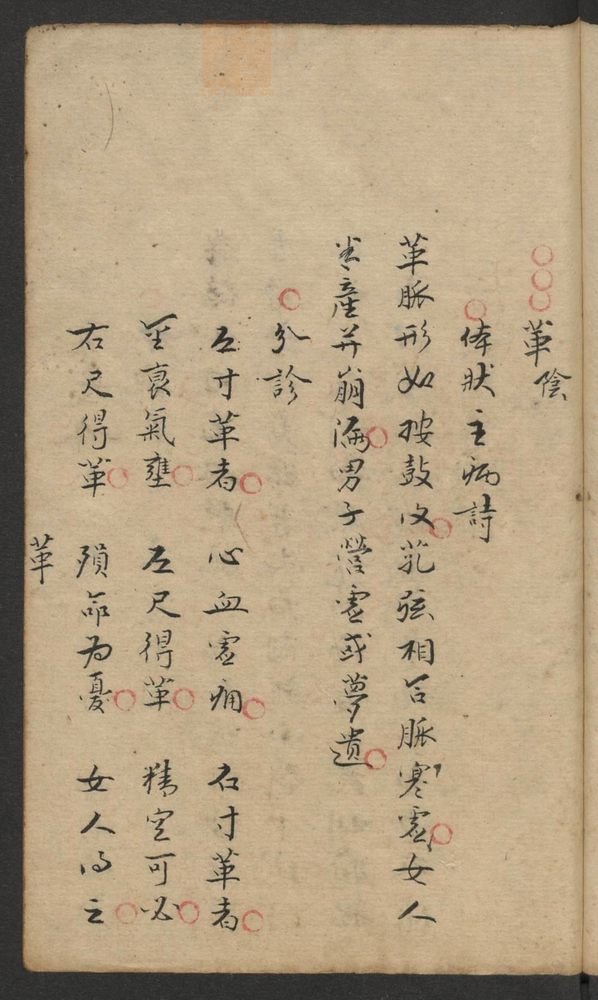 革陰
体狀主病詩
革脈形如按鼓皮芤弦相合脈寒虛女人
半產并崩漏男子營虛或夢遺
分診
左寸革者 心血虛痛 右寸革者
金衰氣壅 左尺得革 精空可必
右尺得革 殞命為憂 女人得之
革